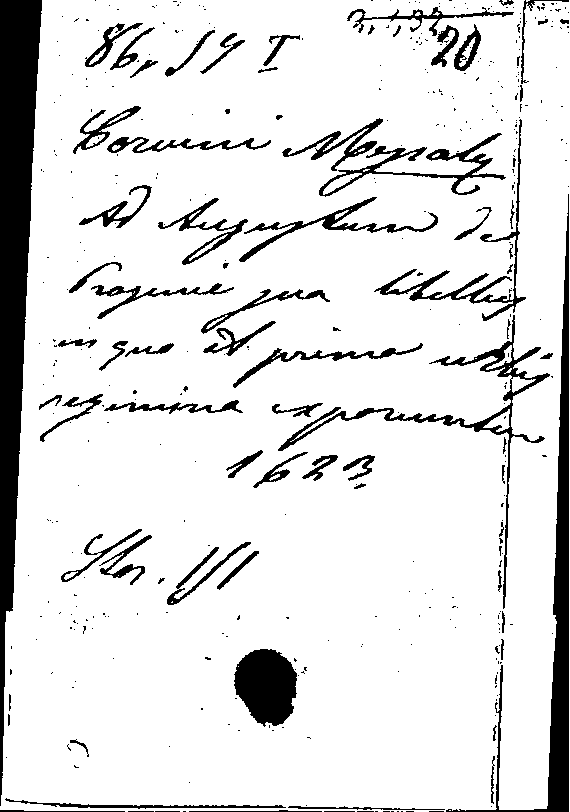 2,1,32
86, J 4 I 20
Corvini Messala
Ad Augustum de
Progenie sua libellus
in quo et prima urbis
regimina exponuntur
1623
Stor.